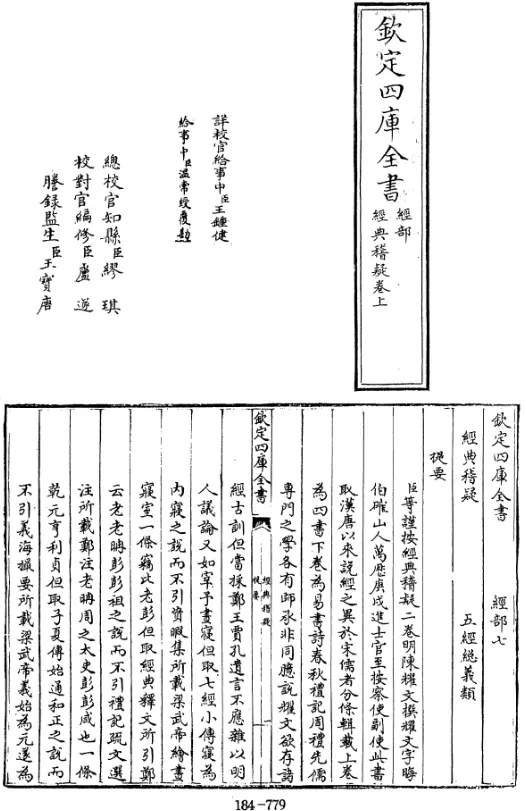 欽定四庫全書
經部
經典稽疑卷上
詳校官給事中臣王鍾健
給事中臣溫常綬覆勘
總校官知縣臣繆琪
校對官編修臣盧遂
謄錄監生臣王寶唐
欽定四庫全書
經部七
經典稽疑
五經總義類
提要
臣等謹按經典稽疑二卷明陳耀文撰耀文字晦
伯確山人萬厯庚戌進士官至按察使副使此書
取漢唐以來說經之異於宋儒者分條輯載上卷
為四書下卷為易書詩春秋禮記周禮先儒
專門之學各有師承非同臆說耀文欲存諸
欽定四庫全書
經典稽疑
提要
一
經古訓但當採鄭王賈孔遺言不應雜以明
人議論又如宰予晝寢但取七經小傳寢為
內寢之說而不引資暇集所載梁武帝繪畫
寢室一條竊比老彭但取經典釋文所引鄭
云老老聃彭彭祖之說而不引禮記疏文選
注所載鄭注老聃周之太史彭彭咸也一條
乾元亨利貞但取子夏傳始通和正之說而
不引義海撮要所載梁武帝義始為元遂為
184-779